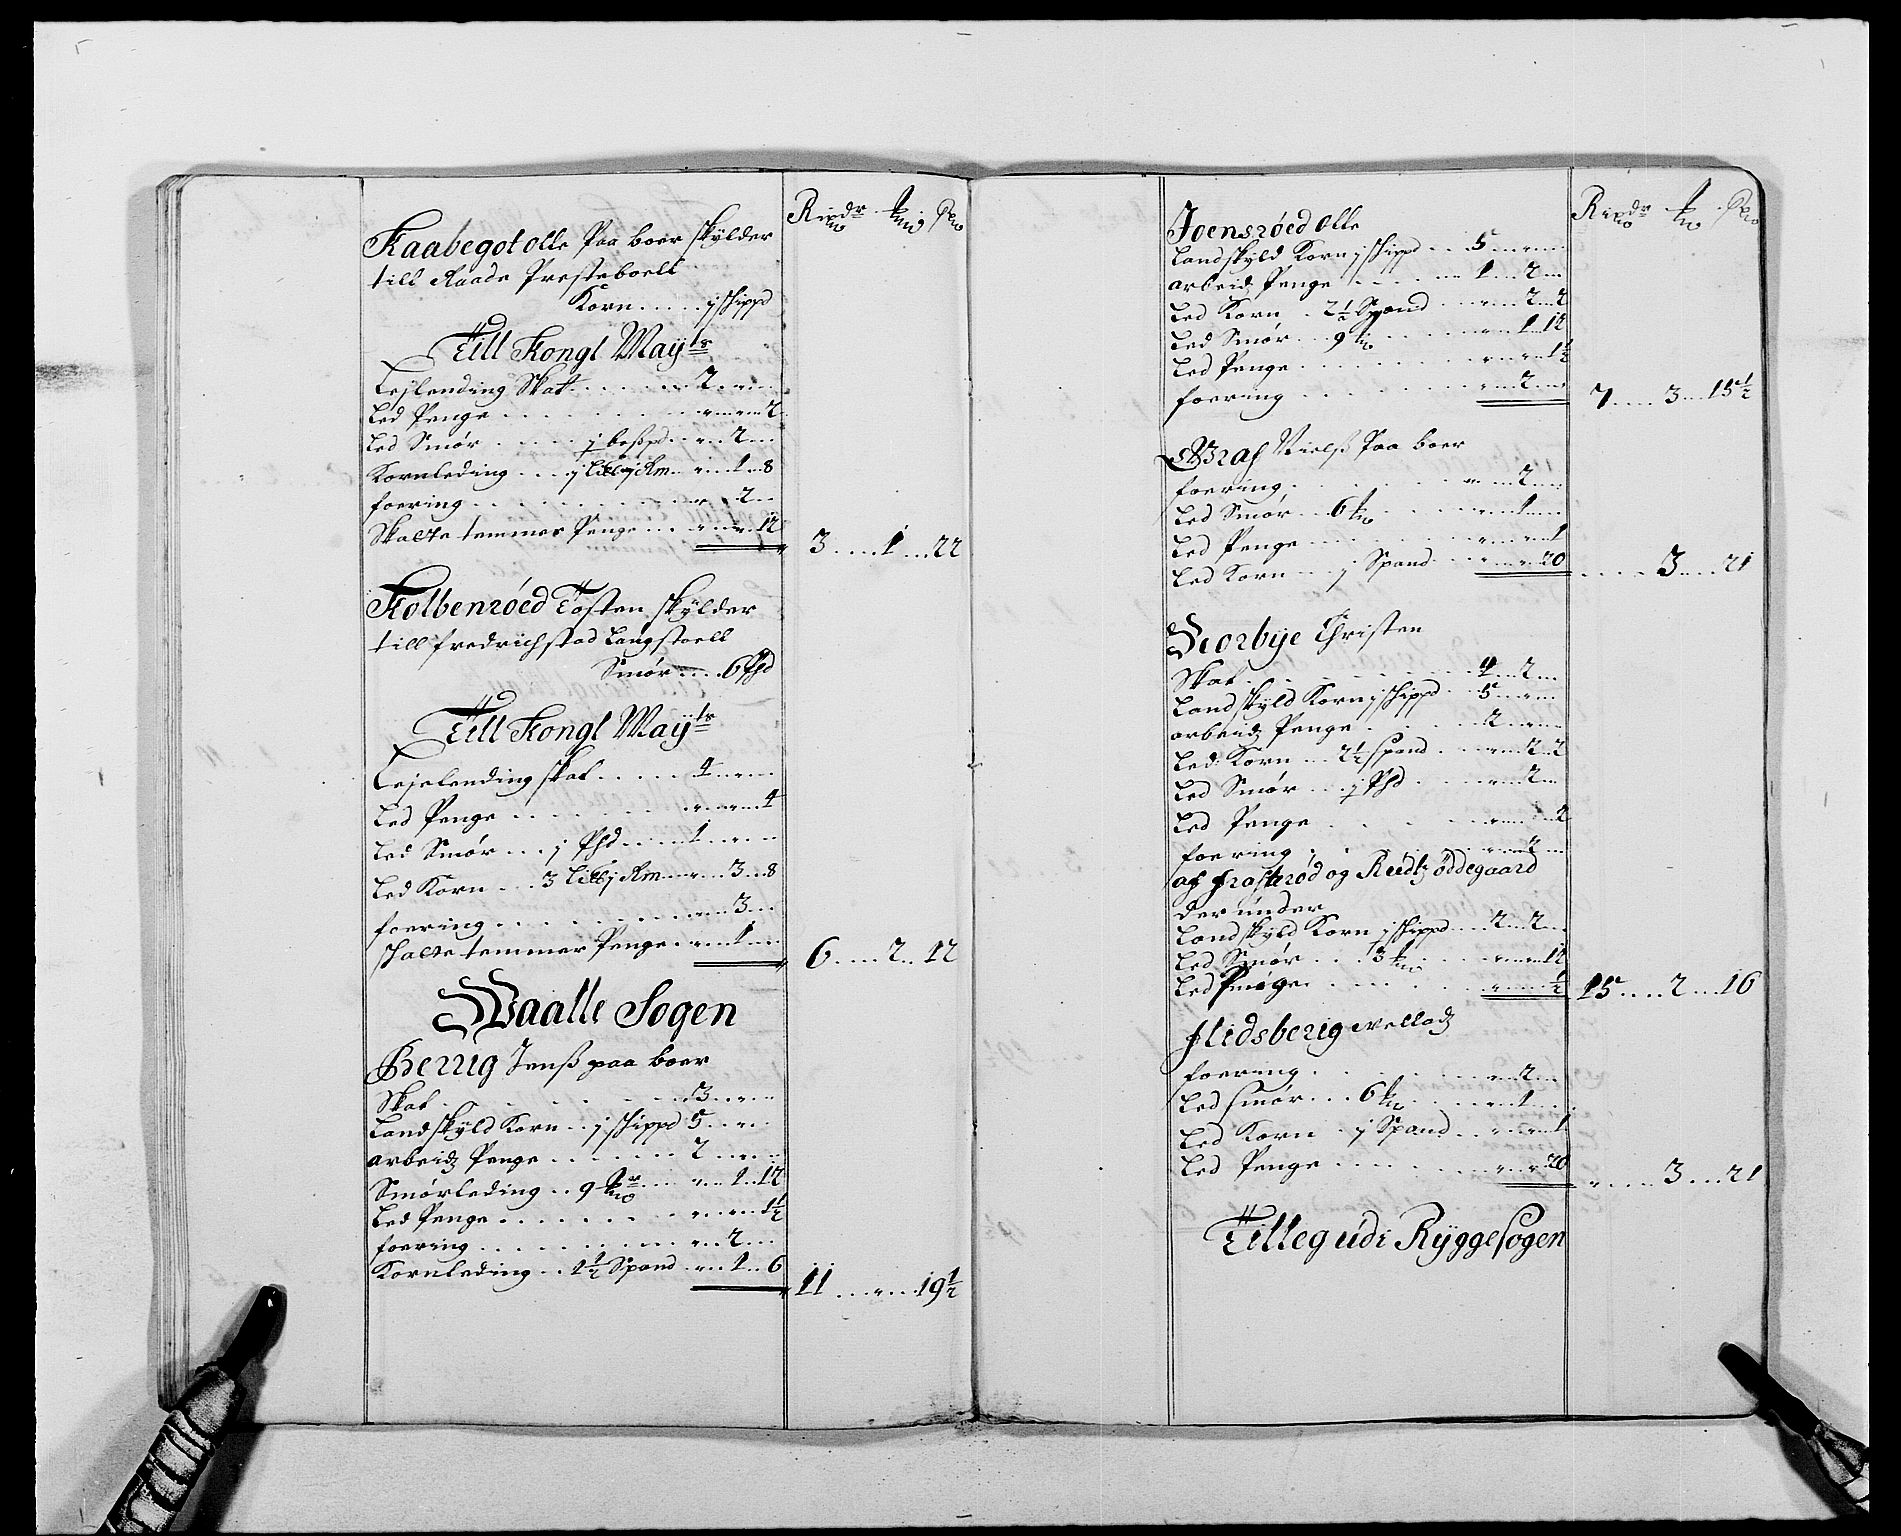 Rixdr
Kaabegot olle Paa boer skÿlder
till Raade Presteboell
Korn . . . . . j skippd
Till Kongl Maÿts
Lejlending Skat . . . . . . 2 . . „ . .
Led Penge . . . . . . . „ . . „ . . 2
Led Smør . . . . . j . . . „ . . 2 . .
Kornleding . . . j . . . „ . . 1 . . 8
foering . . . . . . . . „ . . 2 . .
Skalte temmer Penge . . . „ . . „ . . 12
3 . . . . 1 . . . 22
Kolbenrøed Tosten skÿlder
till fredrichstad Langstoell
Smør . . . . 6 Phd
Till Kongl Maÿts
Lejelending skat . . . . . 4 . . „ . .
Led Penge . . . . . . . „ . . „ . . 4
Led Smør . . . j Phd . . . . 1 . . „ . .
Led Korn . . . 3 . . . „ . . 3 . . 8
foering . . . . . . . . „ . . 3 . .
skalte temmer Penge . . „ . . 1 . .
6 . . . . 2 . . 12
Waalle Sogen
Berrig Jenß paa boer
Skat . . . . . . . . . 3 . . „ . .
Landskÿld Korn . . j skippd 5 . . „ . .
arbeidz Penge . . . . . . . 2 . . „ . .
Smørleding . . 9 . . . „ . . 1 . . 12
Led Penge . . . . . . . „ . . „ . . 1½
foering . . . . . . . . „ . . 2 . .
Kornleding . . 1½ Spand . . „ . . 1 . . 6
11 . . . „ . . . 19½
Rixdr
Joensrøed olle
Landskÿld Korn j skippd . . 5 . . „ . .
arbeidz Penge . . . . . . 1 . . 2 . .
Led Korn . . 2½ Spand . . . „ . . 2 . . 2
Led Smør . . . 9 . . . „ . . 1 . . 12
Led Penge . . . . . . . „ . . „ . . 1½
foering . . . . . . . . „ . . 2 . .
7 . . . . 3 . . . 15½
Graf Nielß Paa boer
foering . . . . . . . . „ . . 2 . .
Led Smør . . 6 . . . „ . . 1 . .
Led Penge . . . . . . . „ . . „ . . 1
Led Korn . . . j Spand . . . „ . . „ . . 20
. . . . . 3 . . . . 21
Christen
Skat . . . . . . . . . 4 . . 2 . .
Landskÿld Korn j skippd . . 5 . . „ . .
arbeidz Penge . . . . . . 2 . . „ . .
Led Korn . . . 2½ spand . . . „ . . 2 . . 2
Led Smør . . . j Phd . . . „ . . 2 . .
Led Penge . . . . . . . „ . . „ . . 2
foering . . . . . . . . „ . . 2 . .
af og Rudtz øddegaard
der under
Landskÿld Korn j skippd . . . 2 . . 2 . .
Led Smør . . . 3 . . . „ . . „ . . 12
Led . . . . . . „ . . „ . . ½
15 . . . . 2 . . . 16
Flidsberig
foering . . . . . . . . „ . . 2 . .
Led smør . . . 6 . . . „ . . 1 . .
Led Korn . . j Spand . . . „ . . „ . . 1
Led Penge . . . . . . . „ . . „ . . 20
„ . . . . 3 . . . 21
Tilleg udi Rÿggesogen